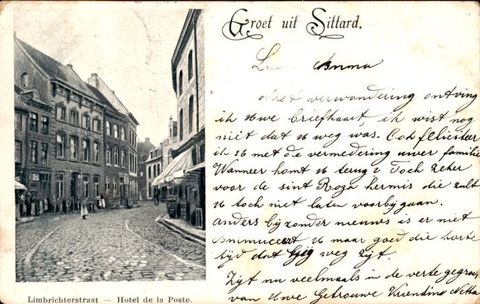 Groet uit Sittard.
Lieve Emma
Met verwondering ontving
ik Uwe briefkaart, ik wist nog
niet dat U weg was. Ook feliciteer
ik U met de vermedering uwer familie
Wanneer komt U terug? Toch zeker
voor de sint Rosa kermis die zult
U toch niet laten voorbijgaan.
anders bijzonder nieuws is er niet
U maar goed die korte
tijd dat gij weg zijt.
Zijt nu veelmaals in de verte gegroet
van Uwe Getrouwe Vriendin Netta
Limbrichterstraat — Hotel de la Poste.